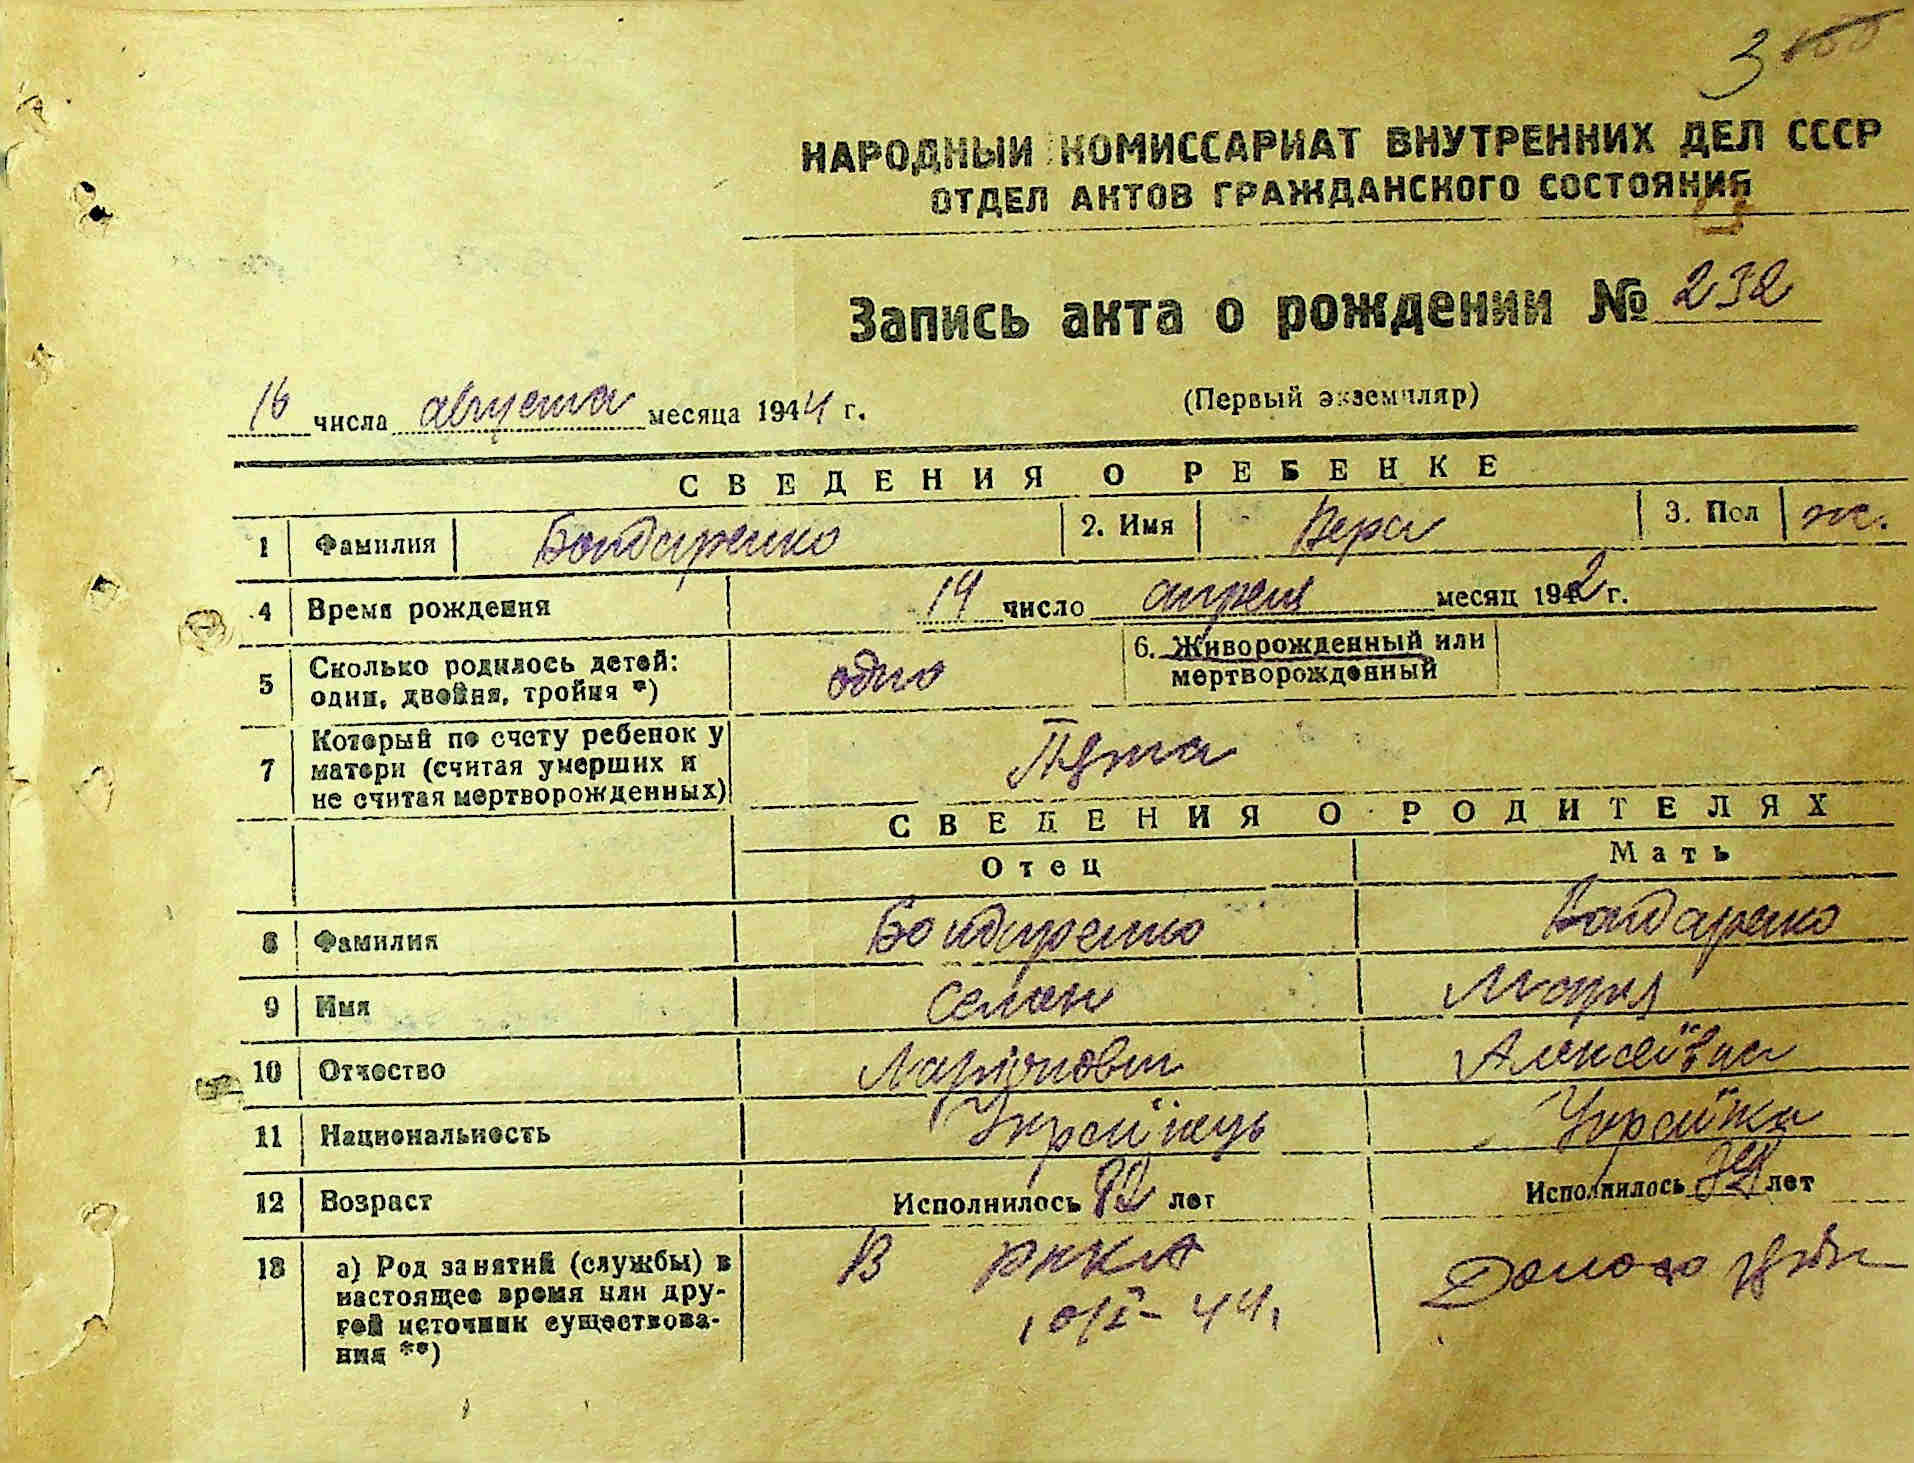 3
НАРОДНЫЙ КОМИССАРИАТ ВНУТРЕННИХ ДЕЛ СССР
ОТДЕЛ АКТОВ ГРАЖДАНСКОГО СОСТОЯНИЯ
Запись акта о рождении № 232
16 числа августа месяца 1944 г.
(Первый экземпляр)
СВЕДЕНИЯ О РЕБЕНКЕ
1 Фамилия Бондаренко 2. Имя Вера 3. Пол ж.
4 Время рождения 14 число апреля месяц 1942 г.
5 Сколько родилось детей: один, двойня, тройня *) одно 6. Живорожденный или мертворожденный
7 Который по счету ребенок у матери (считая умерших и не считая мертворожденных) Пята
СВЕДЕНИЯ О РОДИТЕЛЯХ
Отец Мать
8 Фамилия Бондаренко Бондаренко
9 Имя Семен Мария
10 Отчество Ларіонович Алексеївна
11 Национальность Українець Українка
12 Возраст Исполнилось лет Исполнилось лет
13 а) Род занятий (службы) в настоящее время или другой источник существования **) В РККА
10/I-44. Домохо